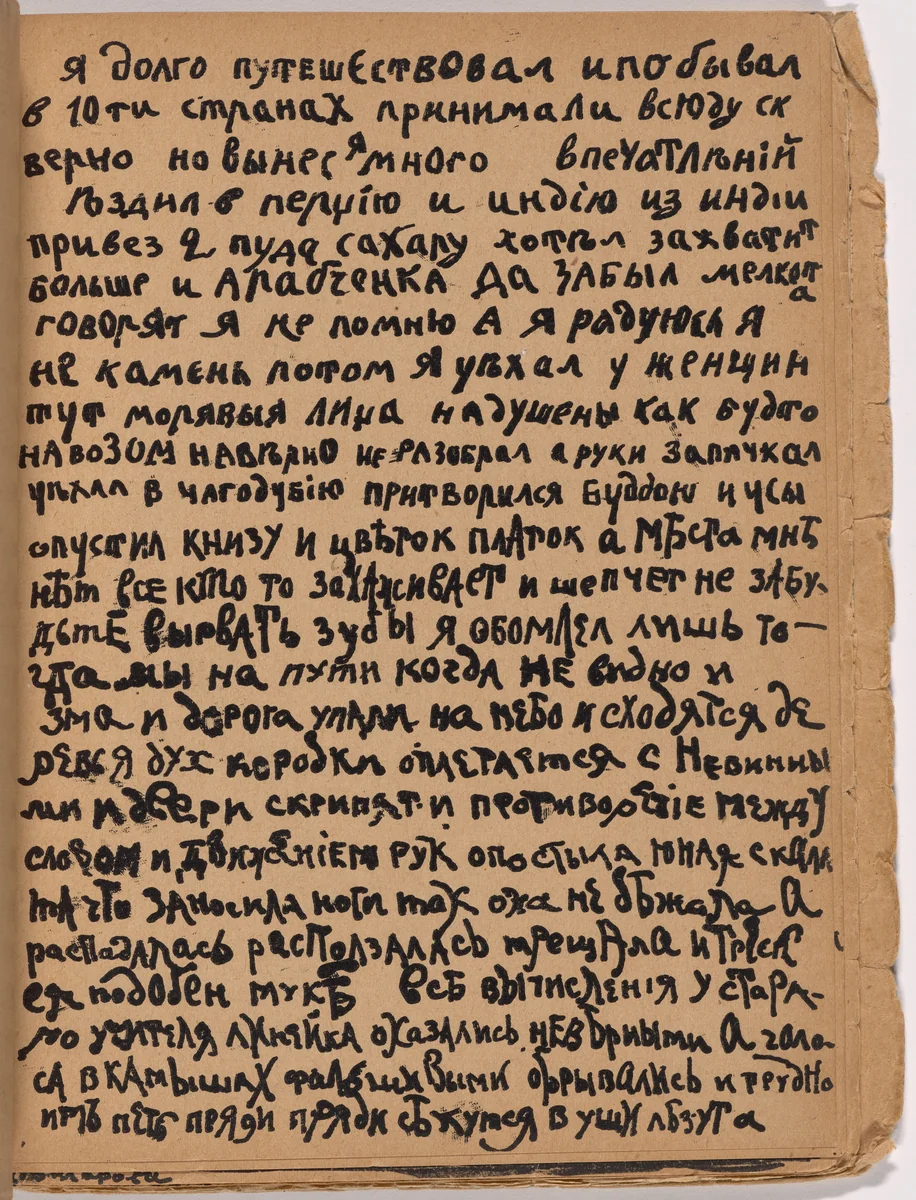 Я долго путешествовал и побывал
в 10ти странах принимали всюду ск
верно но вынес я много впечатлѣній
ѣздил в персію и индію из индіи
привез 2 пуда сахару хотѣл захватит
больше и Арабченка да забыл мелкоп
а
говорят я не помню а я радуюсь я
не камень потом я уѣхал у женщин
тут морявыя лица надушены как будто
навозом навѣрно не разобрал а руки запачкал
уѣхал в чагодубію притворился Буддою и усы
опустил книзу и цвѣток платок а мѣста мнѣ
нѣт все кто то захаживает и шепчет не забу-
дьте вырвать зубы я обомлел лишь то-
гда мы на пути когда не видно и
зма и дорога упали на небо и сходятся де
ревья дух коробки оплетается с невинны
ми и двери скрипят и противорѣчіе между
словом и движеніем рук опостыла юная скала
та что заносила ноги так она не бѣжала а
распадалась расползалась трещала и треск
ея подобен мукѣ всѣ вычисленія у стара-
го учителя линейка оказались невѣрными а голо
са в камышах фальшивыми обрывались и трудно
им пѣть пряди пряди сѣкутся в уши лѣзут а